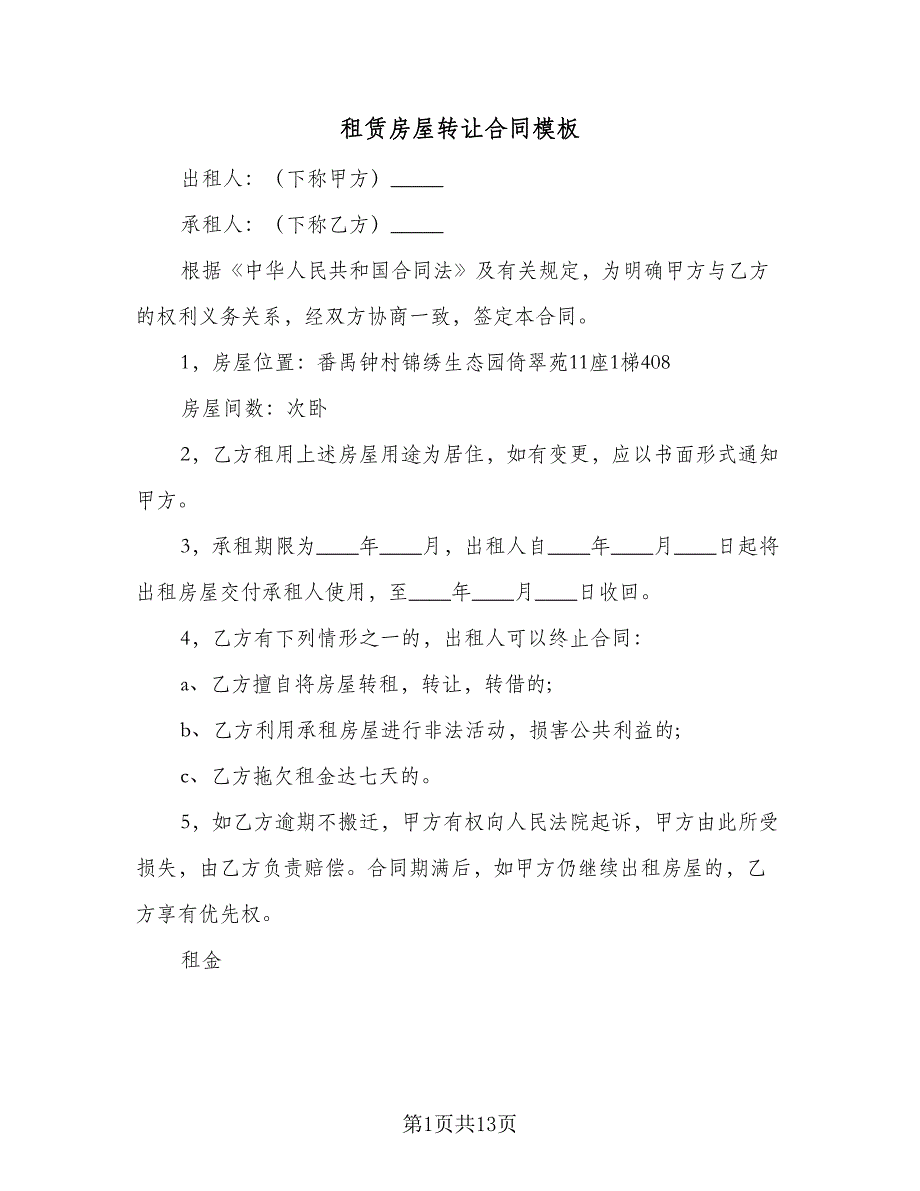 租赁房屋转让合同模板
出租人：（下称甲方）_____
承租人：（下称乙方）_____
根据《中华人民共和国合同法》及有关规定，为明确甲方与乙方
的权利义务关系，经双方协商一致，签定本合同。
1，房屋位置：番禺钟村锦绣生态园倚翠苑11座1梯408
房屋间数：次卧
2，乙方租用上述房屋用途为居住，如有变更，应以书面形式通知
甲方。
3，承租期限为____年____月，出租人自____年____月____日起将
出租房屋交付承租人使用，至____年____月____日收回。
4，乙方有下列情形之一的，出租人可以终止合同：
a、乙方擅自将房屋转租，转让，转借的;
b、乙方利用承租房屋进行非法活动，损害公共利益的;
c、乙方拖欠租金达七天的。
5，如乙方逾期不搬迁，甲方有权向人民法院起诉，甲方由此所受
损失，由乙方负责赔偿。合同期满后，如甲方仍继续出租房屋的，乙
方享有优先权。
租金
第1页共13页